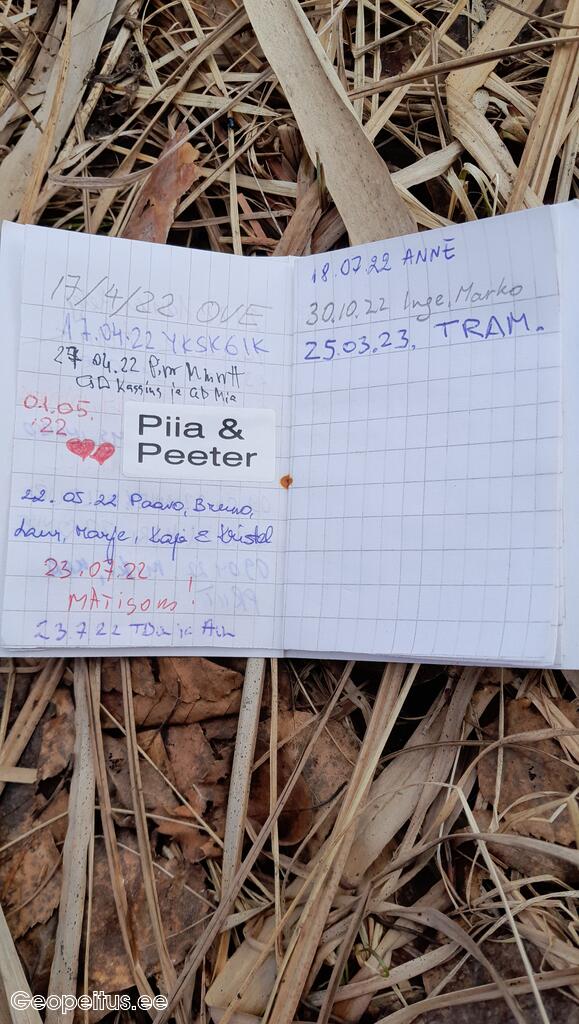 17/4/22 OVE
17.04.22 YKSK6IK
27 04.22
GD Kassius ja GD Mia
01.05.
'22
Piia &
Peeter
22.05.22 Paavo, Breno,
Lauri, Marje, Kaja & Kristel
23.07.22
MATisons!
23.7.22 ja
18.07.22 ANNE
30.10.22 Inge, Marko
25.03.23. TRAM.
Geopeitus.ee